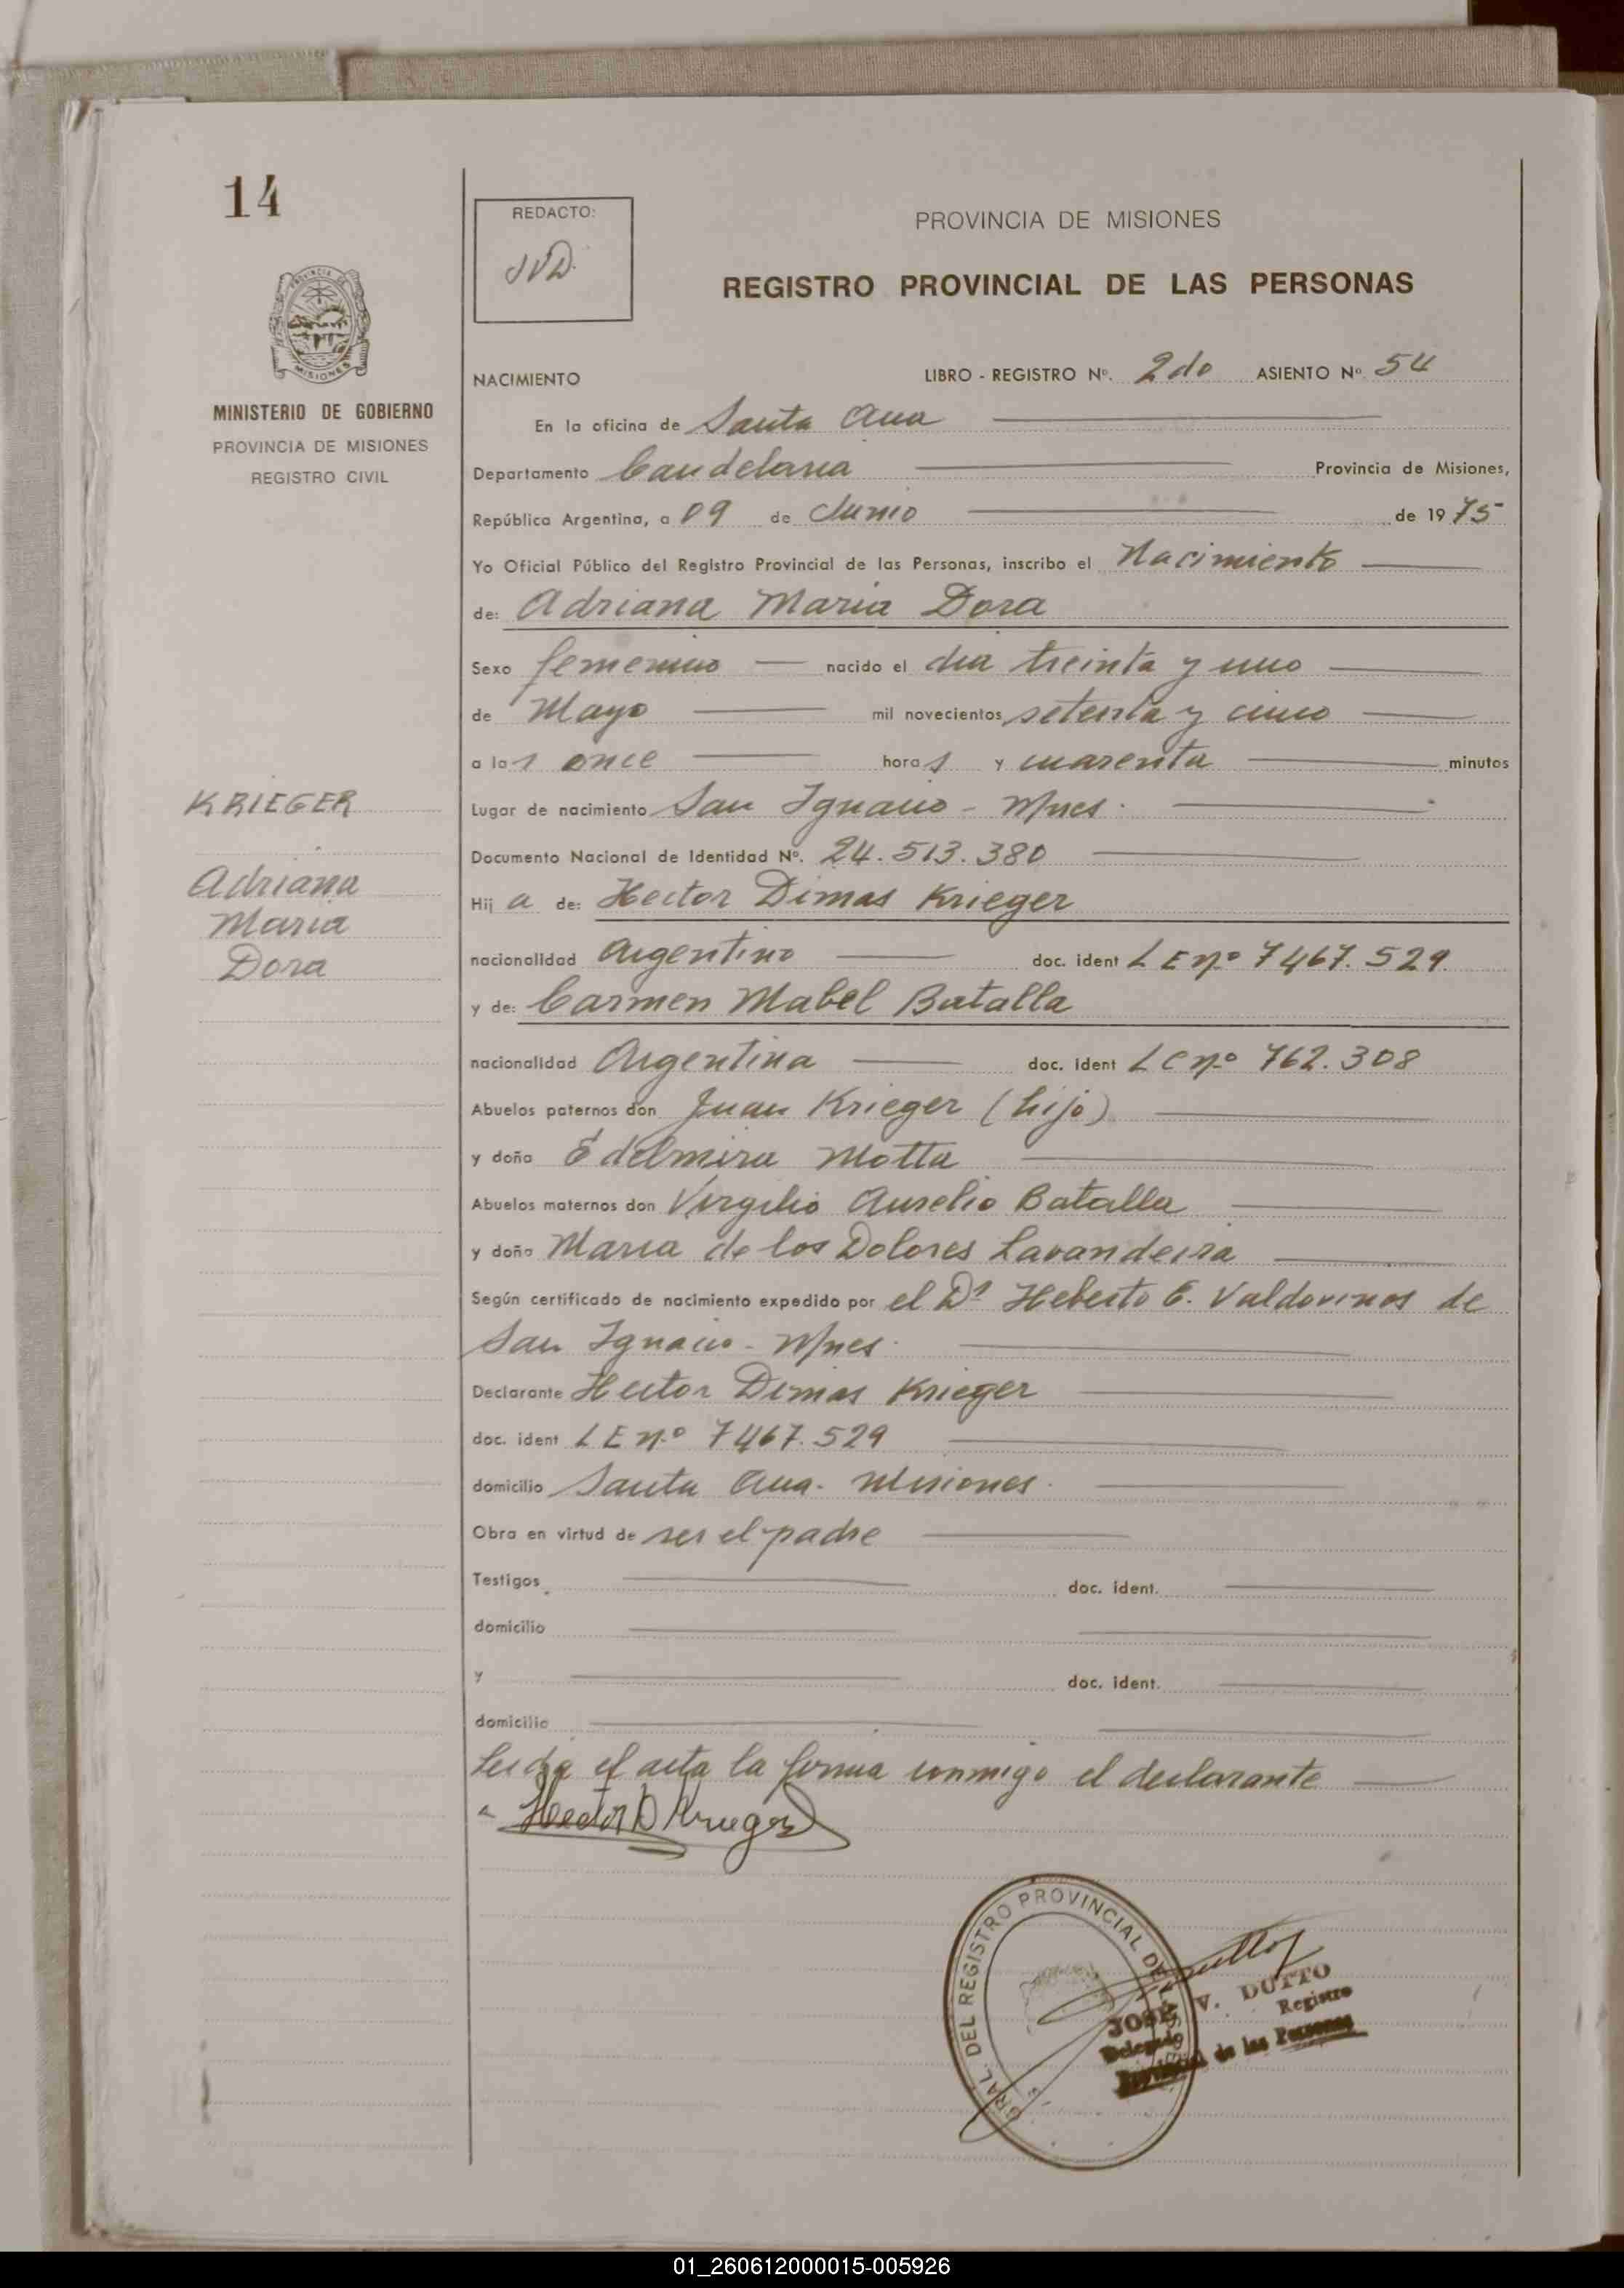 14
REDACTO:
JVD.
PROVINCIA DE MISIONES
REGISTRO PROVINCIAL DE LAS PERSONAS
PROVINCIA DE
MISIONES
MINISTERIO DE GOBIERNO
PROVINCIA DE MISIONES
REGISTRO CIVIL
NACIMIENTO LIBRO - REGISTRO Nº. 2do ASIENTO Nº 54
En la oficina de Santa Ana
Departamento Candelaria Provincia de Misiones,
República Argentina, a 09 de Junio de 1975
Yo Oficial Público del Registro Provincial de las Personas, inscribo el Nacimiento
de: Adriana Maria Dora
Sexo femenino nacido el dia treinta y uno
de Mayo mil novecientos setenta y cinco
a las once horas y cuarenta minutos
KRIEGER
Adriana
Maria
Dora
Lugar de nacimiento San Ignacio - Mnes.
Documento Nacional de Identidad Nº. 24.513.380
Hij a de: Hector Dimas Krieger
nacionalidad Argentino doc. ident L E nº 7467.529
y de: Carmen Mabel Batalla
nacionalidad Argentina doc. ident L C nº 762.308
Abuelos paternos don Juan Krieger (hijo)
y doña Edelmira Motta
Abuelos maternos don Virgilio Aurelio Batalla
y doña Maria de los Dolores Lavandeira
Según certificado de nacimiento expedido por el Dr Heberto E. Valdovinos de
San Ignacio - Mnes.
Declarante Hector Dimas Krieger
doc. ident L E nº 7467.529
domicilio Santa Ana - Misiones.
Obra en virtud de ser el padre
Testigos doc. ident.
domicilio
y doc. ident.
domicilio
Leida el acta la firma conmigo el declarante
Hector D Krieger
GRAL. DEL REGISTRO PROVINCIAL DE LAS
JOSE V. DUTTO
Delegado Registro
Provincial de las Personas
01_260612000015-005926